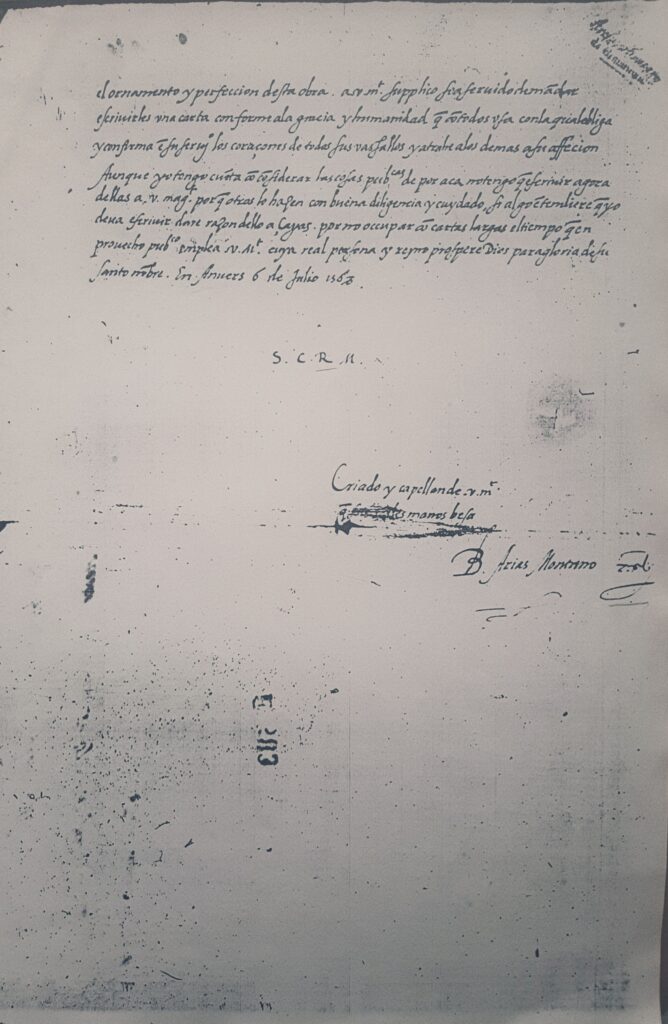 el ornamento y perfeccion desta obra . a .v. mt. supplico sea servido de mādar
escrivirles una carta conforme a la gracia y humanidad q̄ cō todos usa con la qual obliga
y confirma ē su servi^o los coraçones de todos sus vassallos y atrahe a los demas a su affecion
Aunque yo tengo cuēta cō cōsiderar las cosas pub^cas de por aca, no tengo q̄ escrivir agora
dellas a .v. mag^t. por q̄ otros lo hazen con buena diligencia y cuydado, si algo ētendiere q̄ yo
deva escrivir dare razon dello a Çayas. por no occupar cō cartas largas el tiempo q̄ en
provecho pub^co emplea .v. M^t. cuya real persona y reyno prospere Dios para gloria de su
santo nōbre. En Anvers 6 de Julio 1568.
S. C. R. M.
Criado y capellan de .v. m^t.
q̄ sus manos besa
B. Arias Montano